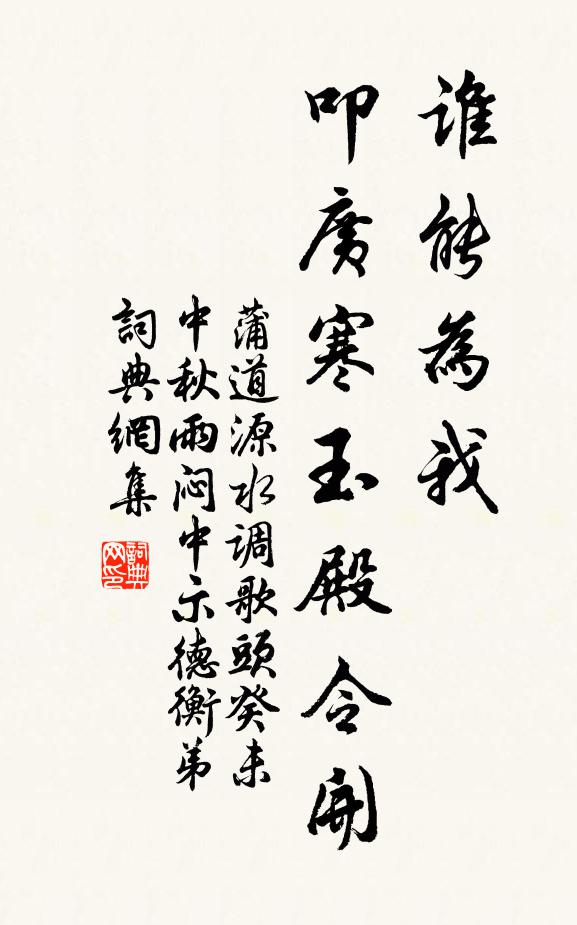 谁能為我
叩廣寒玉殿令開
蒲道源水调歌頭癸未
中秋雨闷中示德衡弟
詞典網集
詞典网印